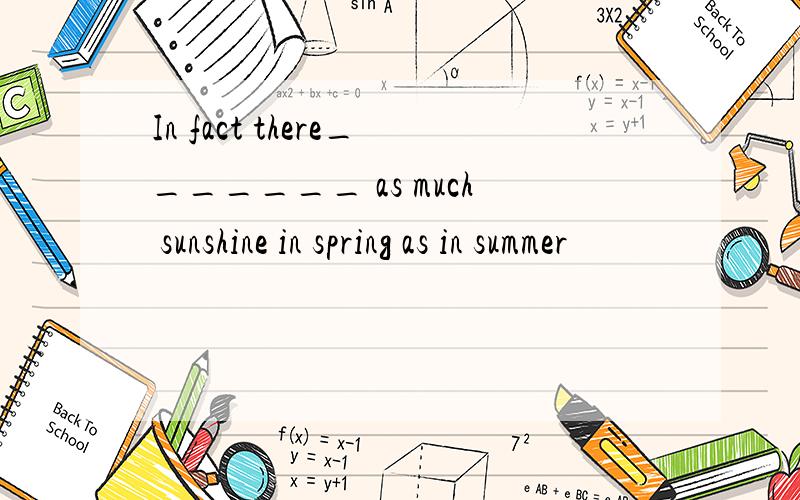 sin A
3X2
Back To
School
ax2 + bx +c = 0
x
α
f(x) = x-1
y = x-1
x = y+1
C
In fact there_
______ as much
sunshine in spring as in summer
Back To
School
f(x) = x-1
y = x-1
x = y+1
7²
e AB + e BC = e A